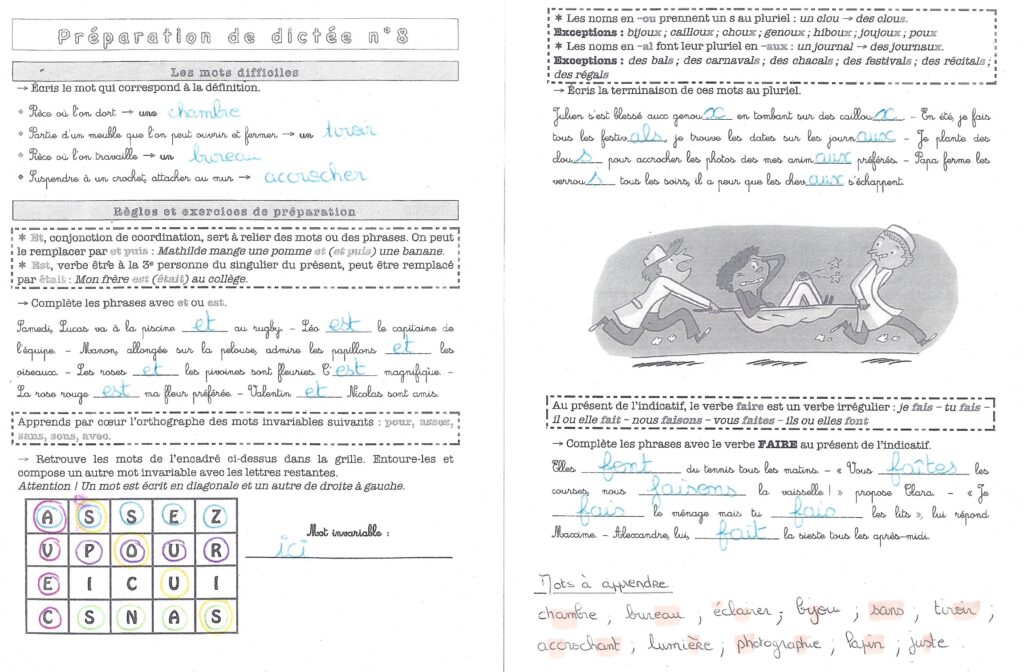 Préparation de dictée n°8
Les mots difficiles
→ Écris le mot qui correspond à la définition.
❖ Pièce où l'on dort → une chambre
❖ Partie d'un meuble que l'on peut ouvrir et fermer → un tiroir
❖ Pièce où l'on travaille → un bureau
❖ Suspendre à un crochet, attacher au mur → accrocher
Règles et exercices de préparation
✶ Et, conjonction de coordination, sert à relier des mots ou des phrases. On peut
le remplacer par et puis : Mathilde mange une pomme et (et puis) une banane.
✶ Est, verbe être à la 3e personne du singulier du présent, peut être remplacé
par était : Mon frère est (était) au collège.
→ Complète les phrases avec et ou est.
Samedi, Lucas va à la piscine et au rugby. – Léo est le capitaine de
l'équipe. – Manon, allongée sur la pelouse, admire les papillons et les
oiseaux. – Les roses et les pivoines sont fleuries. C'est magnifique. –
La rose rouge est ma fleur préférée. – Valentin et Nicolas sont amis.
Apprends par cœur l'orthographe des mots invariables suivants : pour, assez,
sans, sous, avec.
→ Retrouve les mots de l'encadré ci-dessus dans la grille. Entoure-les et
compose un autre mot invariable avec les lettres restantes.
Attention ! Un mot est écrit en diagonale et un autre de droite à gauche.
A S S E Z
V P O U R
E I C U I
C S N A S
Mot invariable :
ici
✶ Les noms en –ou prennent un s au pluriel : un clou → des clous.
Exceptions : bijoux ; cailloux ; choux ; genoux ; hiboux ; joujoux ; poux
✶ Les noms en –al font leur pluriel en –aux : un journal → des journaux.
Exceptions : des bals ; des carnavals ; des chacals ; des festivals ; des récitals ;
des régals
→ Écris la terminaison de ces mots au pluriel.
Julien s'est blessé aux genoux en tombant sur des cailloux – En été, je fais
tous les festivals, je trouve les dates sur les journaux – Je plante des
clous pour accrocher les photos des mes animaux préférés. – Papa ferme les
verrous tous les soirs, il a peur que les chevaux s'échappent.
Au présent de l'indicatif, le verbe faire est un verbe irrégulier : je fais – tu fais –
il ou elle fait – nous faisons – vous faites – ils ou elles font
→ Complète les phrases avec le verbe FAIRE au présent de l'indicatif.
Elles font du tennis tous les matins. – « Vous faîtes les
courses, nous faisons la vaisselle ! » propose Clara. – « Je
fais le ménage mais tu fais les lits », lui répond
Maxime. – Alexandre, lui, fait la sieste tous les après-midi.
Mots à apprendre
chambre ; bureau ; éclairer ; bijou ; sans ; tiroir ;
accrochant ; lumière ; photographie ; lapin ; juste.